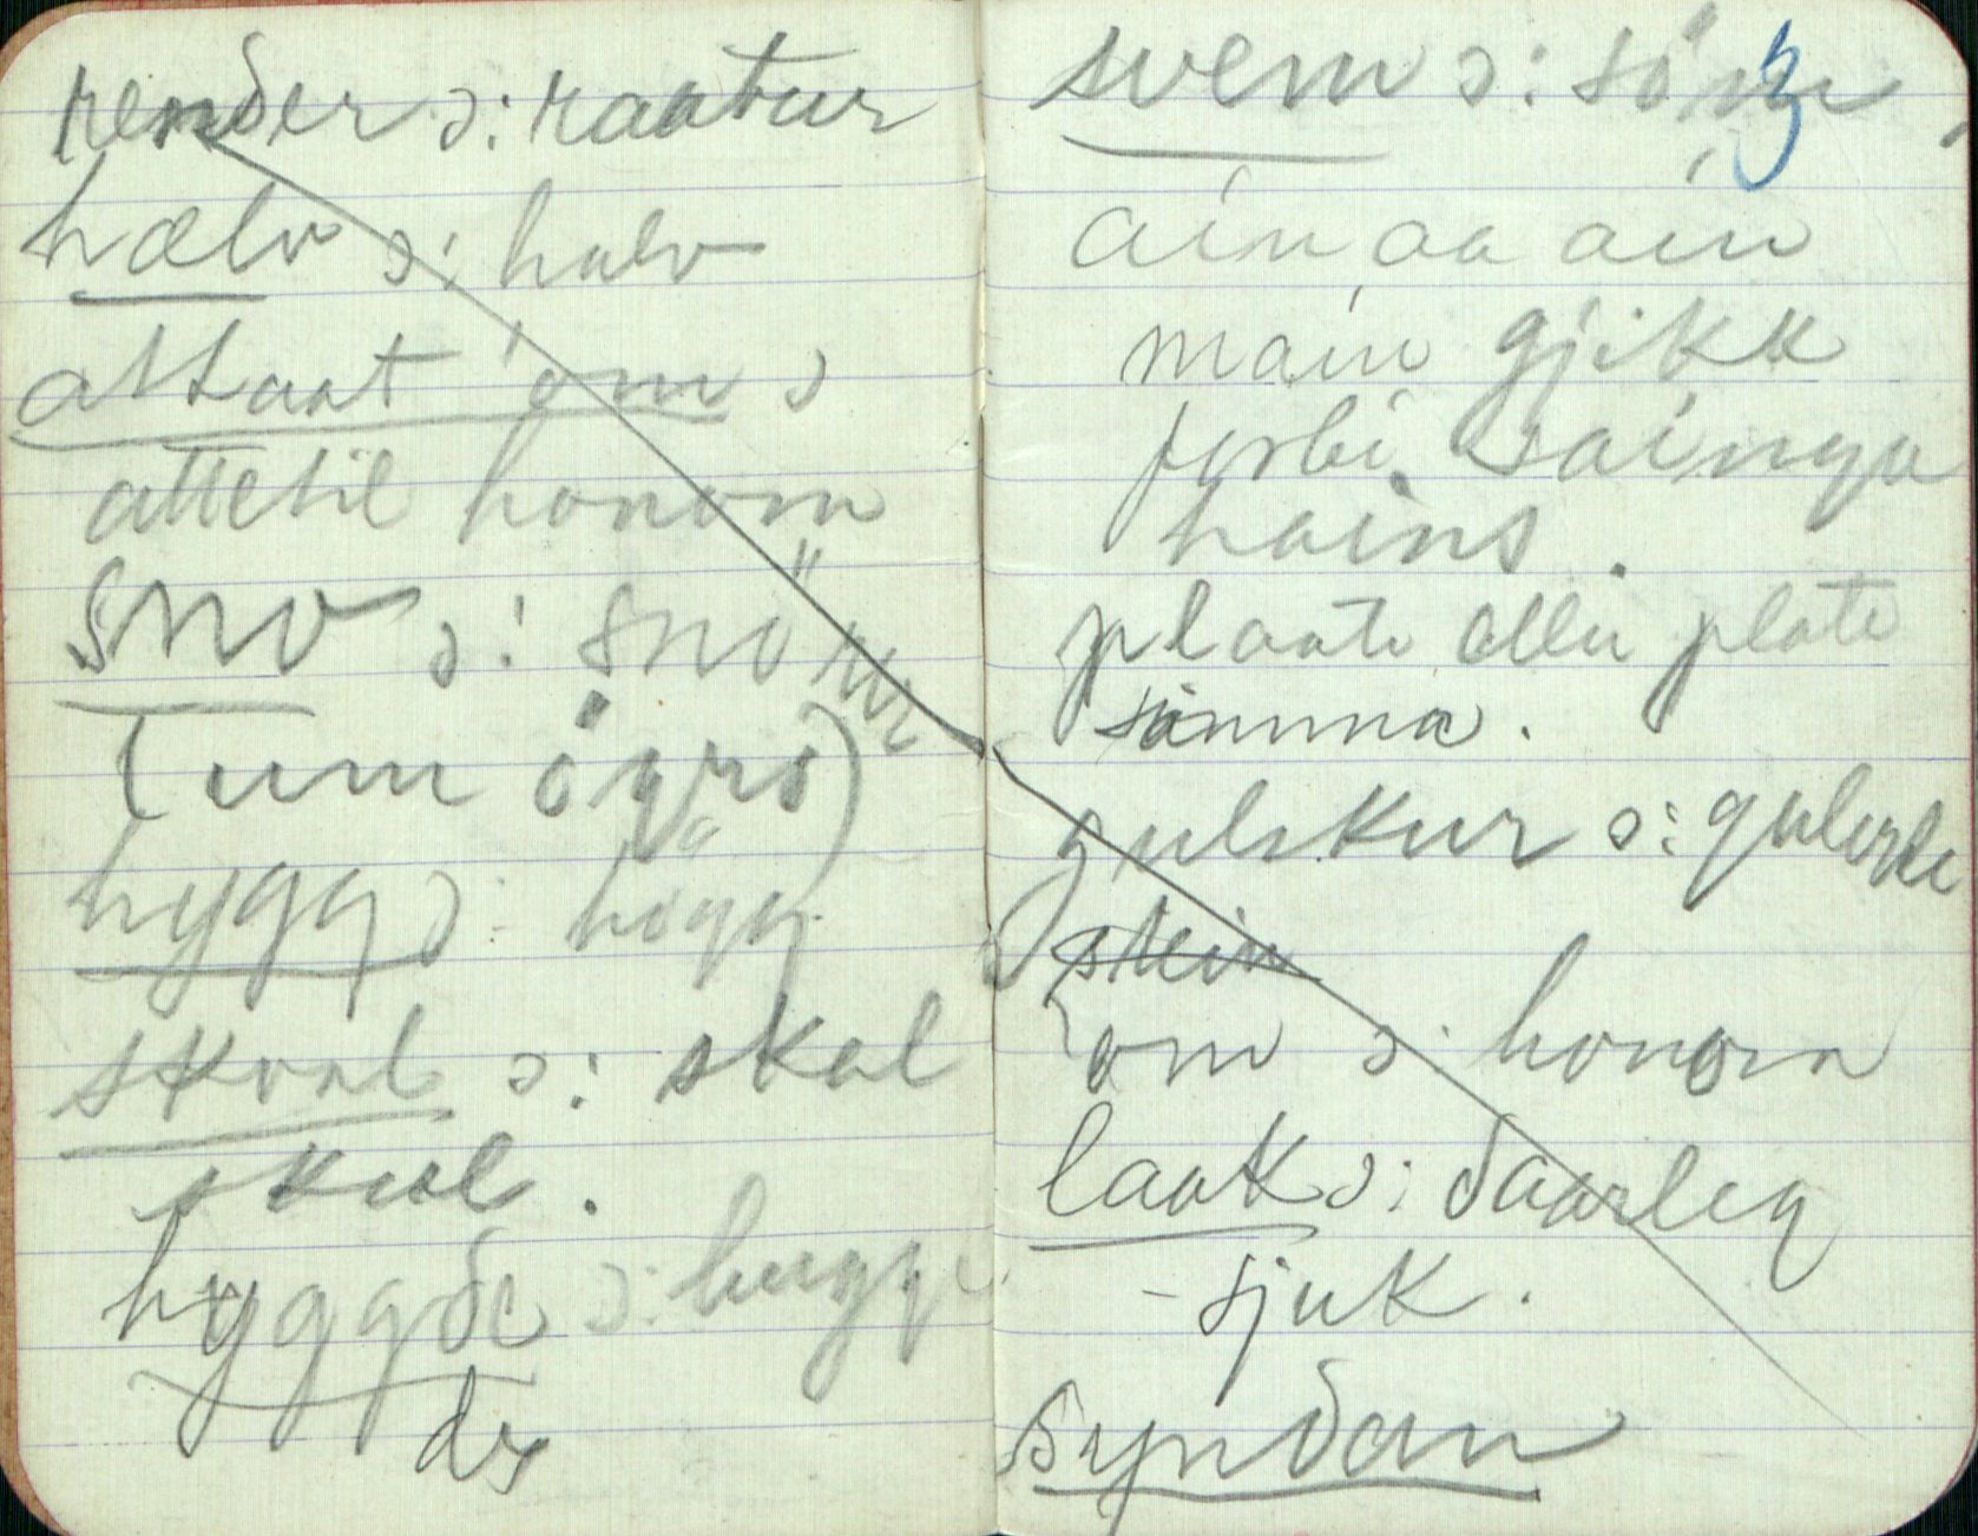 render ɔ: raatur
hælv ɔ: halv
attaat om ɔ
attetil honom
sno ɔ: snö
(um ögrö)
hygg ɔ: högg
skaal ɔ: skal
skul.
hyggde ɔ: hugg
de
svem ɔ: söm
3
ain aa ain
main gjikk
forbi sainga
hains.
plaate eller plate
sömma.
gulskur ɔ: gulerte
stein
om ɔ: honom
laak ɔ: daarleg
- sjuk.
syndan